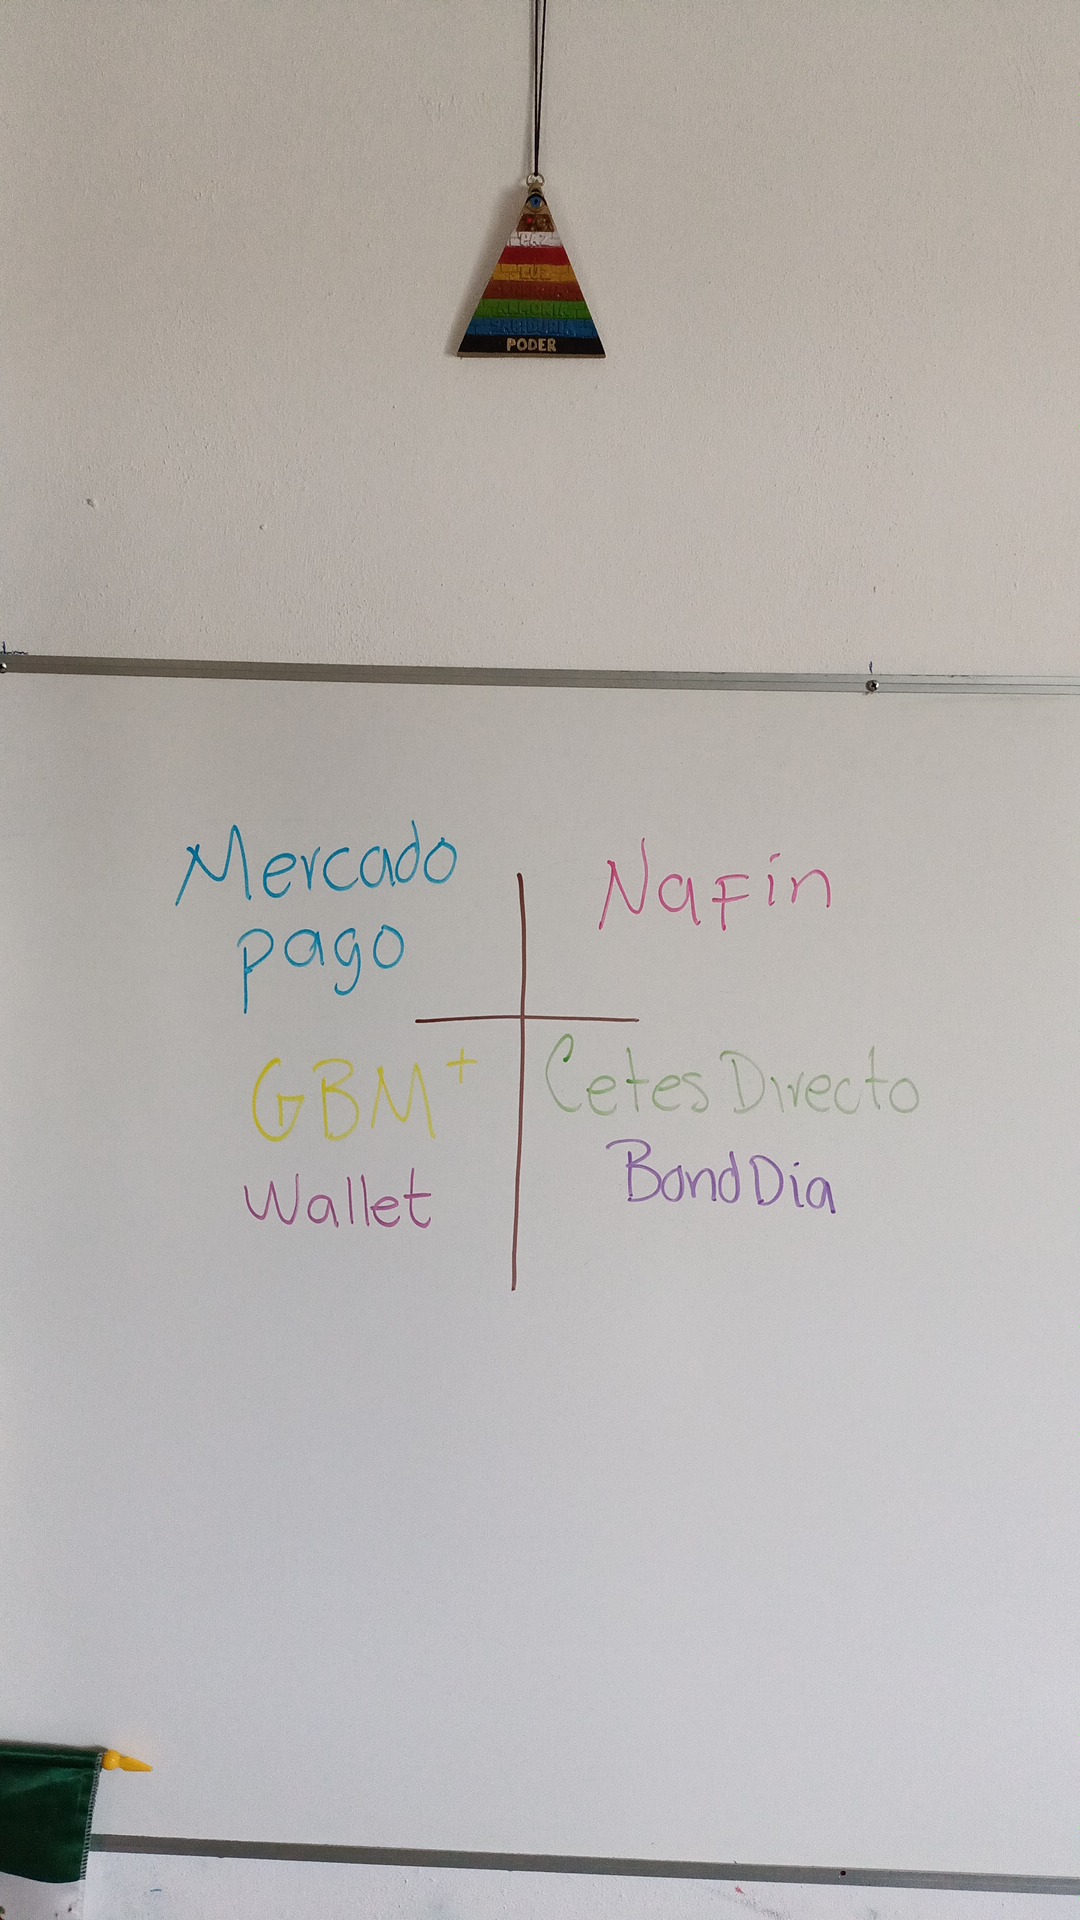 PAZ
LUZ
ALEGRIA
SABIDURIA
PODER
Mercado
pago
NaFin
GBM+
Wallet
CetesDirecto
BondDia